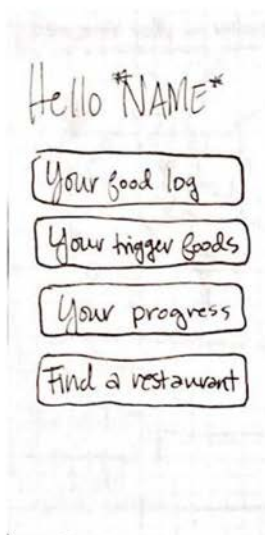 Hello *NAME*
Your food log
Your trigger foods
Your progress
Find a restaurant